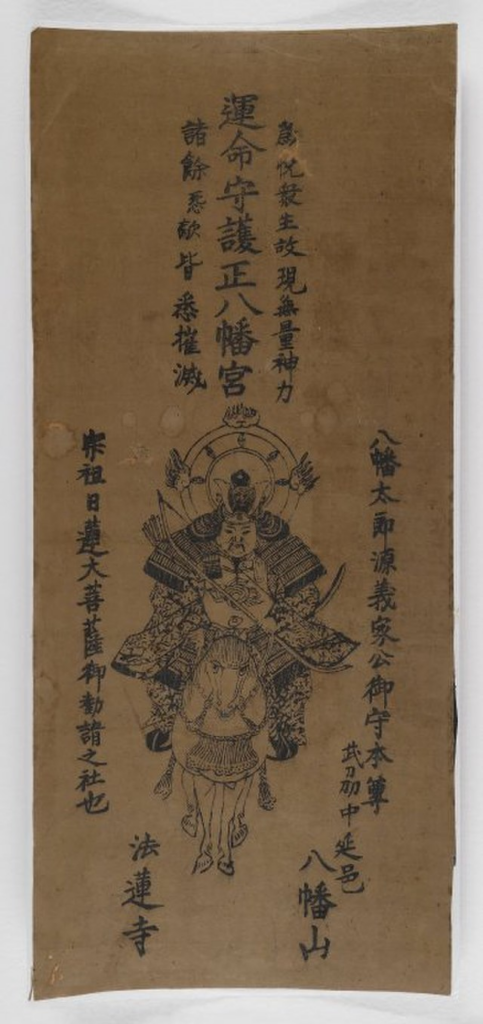 為悦衆生故現無量神力
運命守護正八幡宮
諸餘怨敵皆悉摧滅
八幡太郎源義家公御守本尊
宗祖日蓮大菩薩御勧請之社也
武刕中延邑
八幡山
法蓮寺